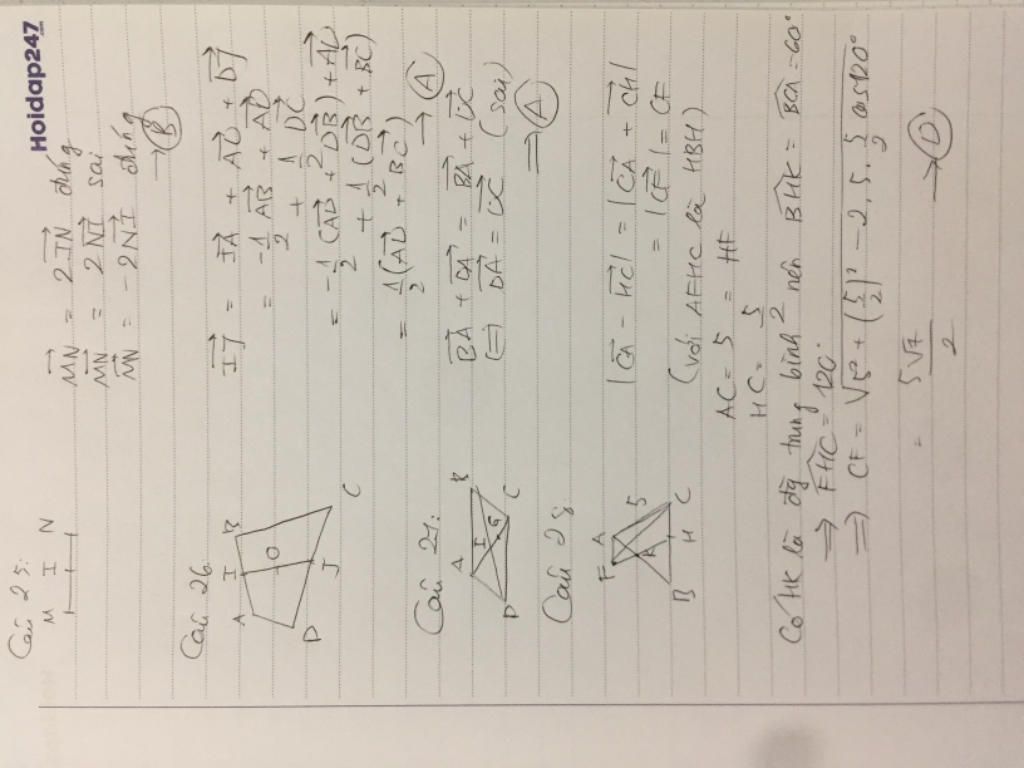 Hoidap247
Câu 25:
M I N
MN = 2IN đúng
MN = 2NI sai
MN = -2NI đúng
→ B
Câu 26.
A I B
O
D J C
IJ = IA + AD + DJ
= -1/2 AB + AD
+ 1/2 DC
= -1/2 (AD + DB) + AD
+ 1/2 (DB + BC)
= 1/2 (AD + BC)
→ A
Câu 27:
A B
I
G
D C
BA + DA = BA + DC
⇔ DA = DC (sai)
⇒ A
Câu 28:
F A
K 5
B H C
|CA - HC| = |CA + CH|
= |CF| = CF
(với AFHC là HBH)
AC = 5 = HF
HC = 5/2
Có HK là đg trung bình nên BHK = BCA = 60°
⇒ FHC = 120°
⇒ CF = √5² + (5/2)² - 2.5.5/2 cos120°
= 5√7/2
→ D